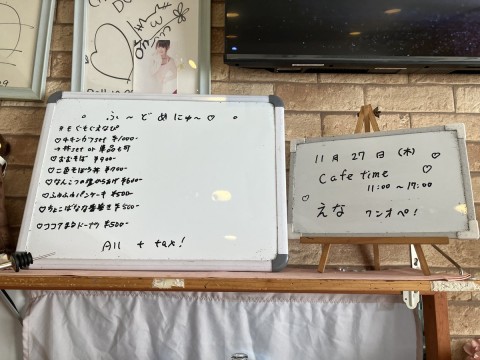 ふ〜どめにゅ〜♡
#もぐもぐえなぴ
♡チキンカツset ¥1000-
→丼set or 単品も可
♡おむそば ¥900-
♡二色そぼろ丼 ¥900-
♡なんこつの唐からあげ ¥600-
♡ふわふわパンケーキ ¥500-
♡ちょこばなな春巻き ¥500-
♡ココアまるドーナツ ¥500-
All + tax!
11月27日(木)
Cafe time
11:00〜17:00
えな ワンオペ!